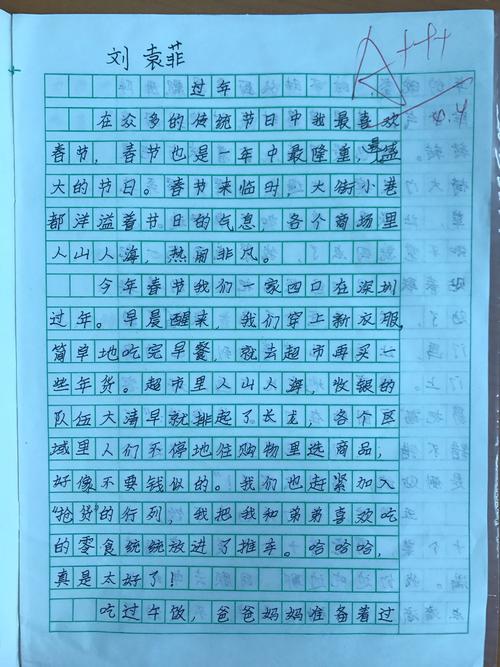 刘袁菲
A+++
过年
在众多的传统节日中我最喜欢
春节，春节也是一年中最隆重，最盛
大的节日。春节来临时，大街小巷
都洋溢着节日的气息，各个商场里
人山人海，热闹非凡。
今年春节我们一家四口在深圳
过年。早晨醒来，我们穿上新衣服，
简单地吃完早餐，就去超市再买一
些年货。超市里人山人海，收银的
队伍大清早就排起了长龙，各个区
域里人们不停地往购物里选商品，
好像不要钱似的。我们也赶紧加入
“抢货”的行列，我把我和弟弟喜欢吃
的零食统统放进了推车。哈哈哈，
真是太好了！
吃过午饭，爸爸妈妈准备着过